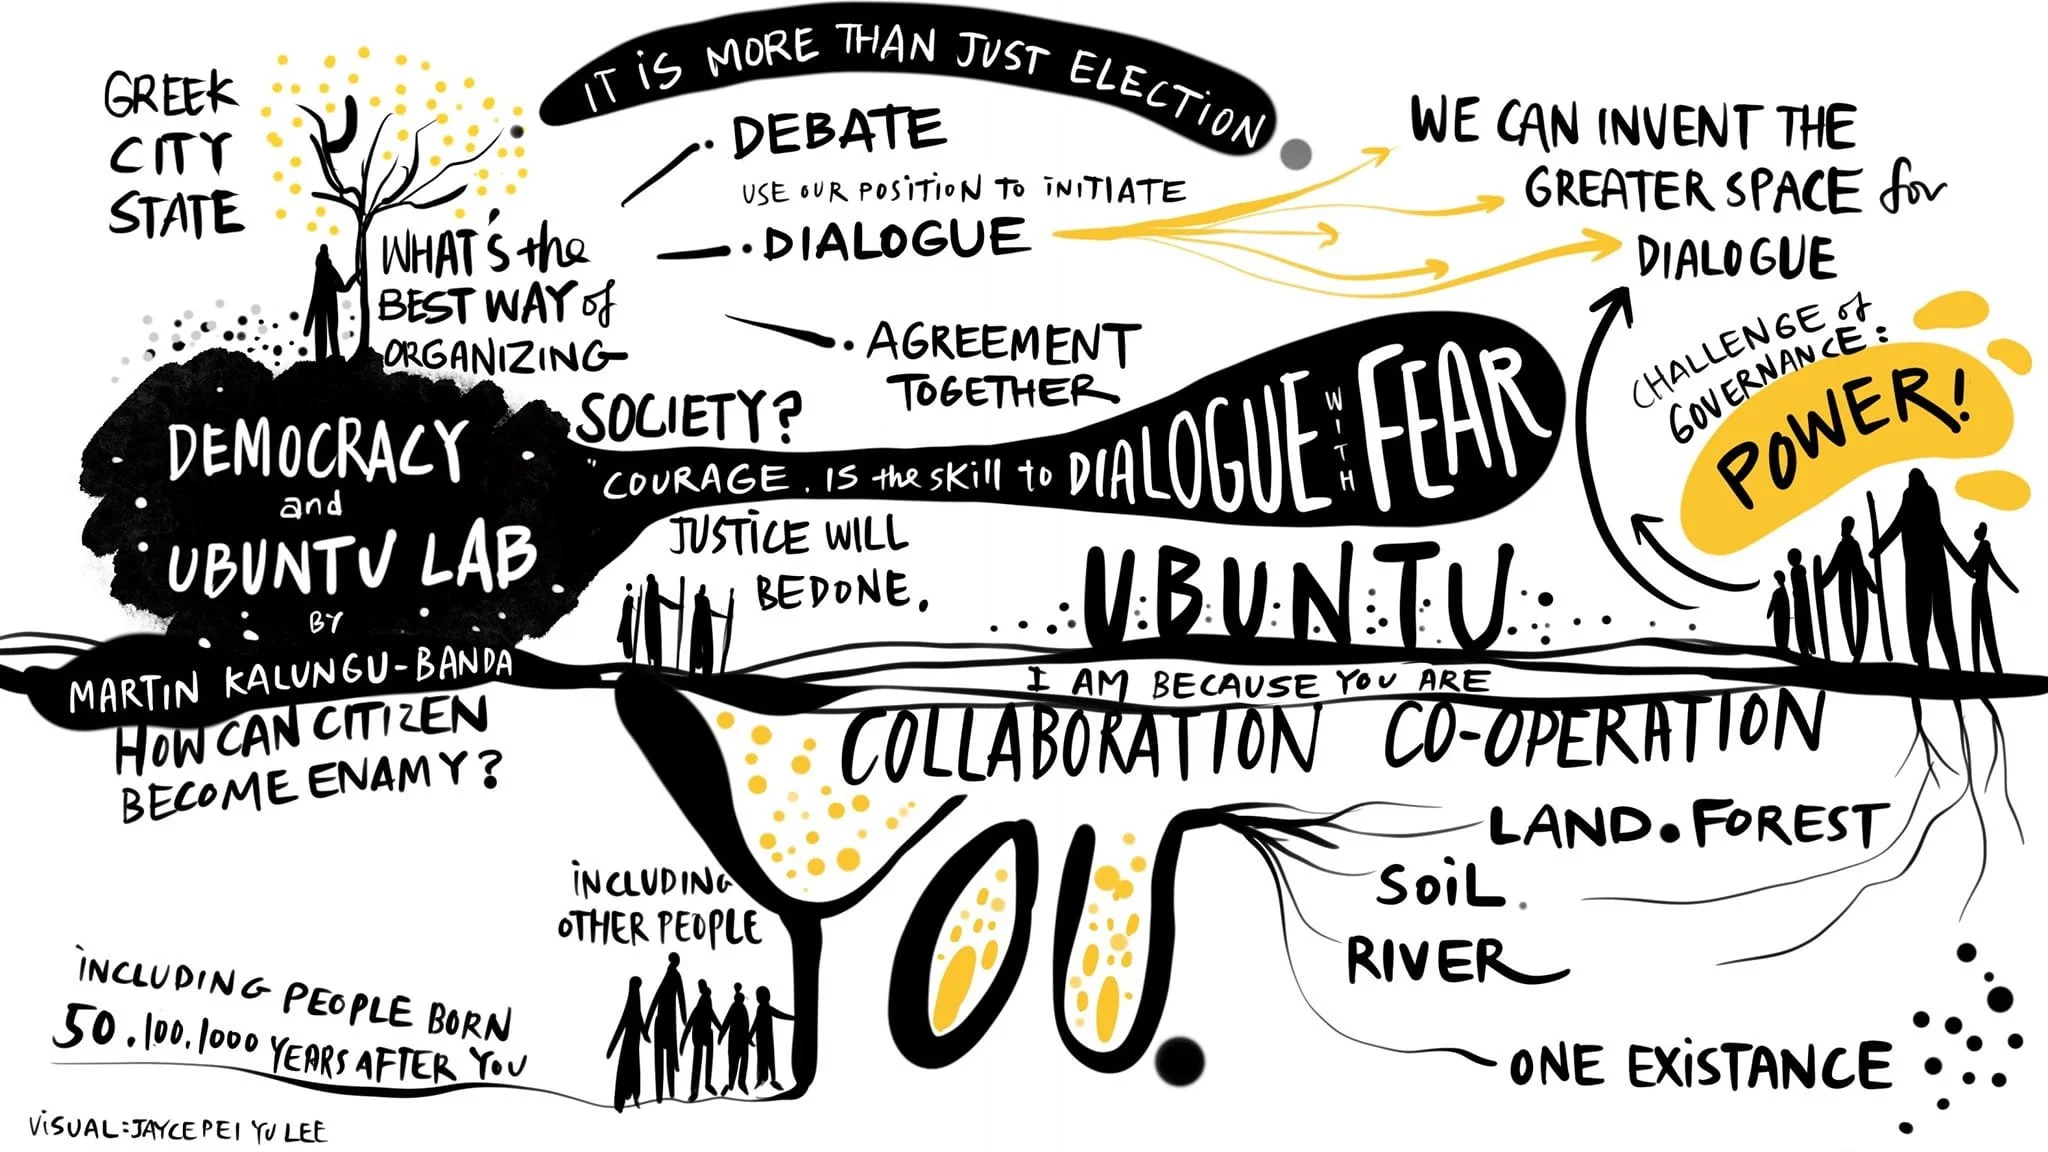 GREEK
CITY
STATE
IT iS MORE THAN JUST ELECTION
WHAT'S the
BEST WAY of
ORGANIZING
SOCIETY?
DEBATE
USE OUR POSITION TO iNITIATE
DIALOGUE
AGREEMENT
TOGETHER
WE CAN INVENT THE
GREATER SPACE for
DIALOGUE
CHALLENGE of
GOVERNANCE:
POWER!
DEMOCRACY
and
UBUNTU LAB
BY
MARTIN KALUNGU-BANDA
"COURAGE. IS the SKill to DIALOGUE WITH FEAR
JUSTICE WILL
BE DONE.
HOW CAN CITIZEN
BECOME ENAMY?
UBUNTU
I AM BECAUSE YOU ARE
COLLABORATION CO-OPERATION
LAND.FOREST
SOiL
RIVER
ONE EXISTANCE
iNCLUDING
OTHER PEOPLE
iNCLUDING PEOPLE BORN
50.100.1000 YEARS AFTER YOU
ViSUAL:JAYCE PEI YU LEE